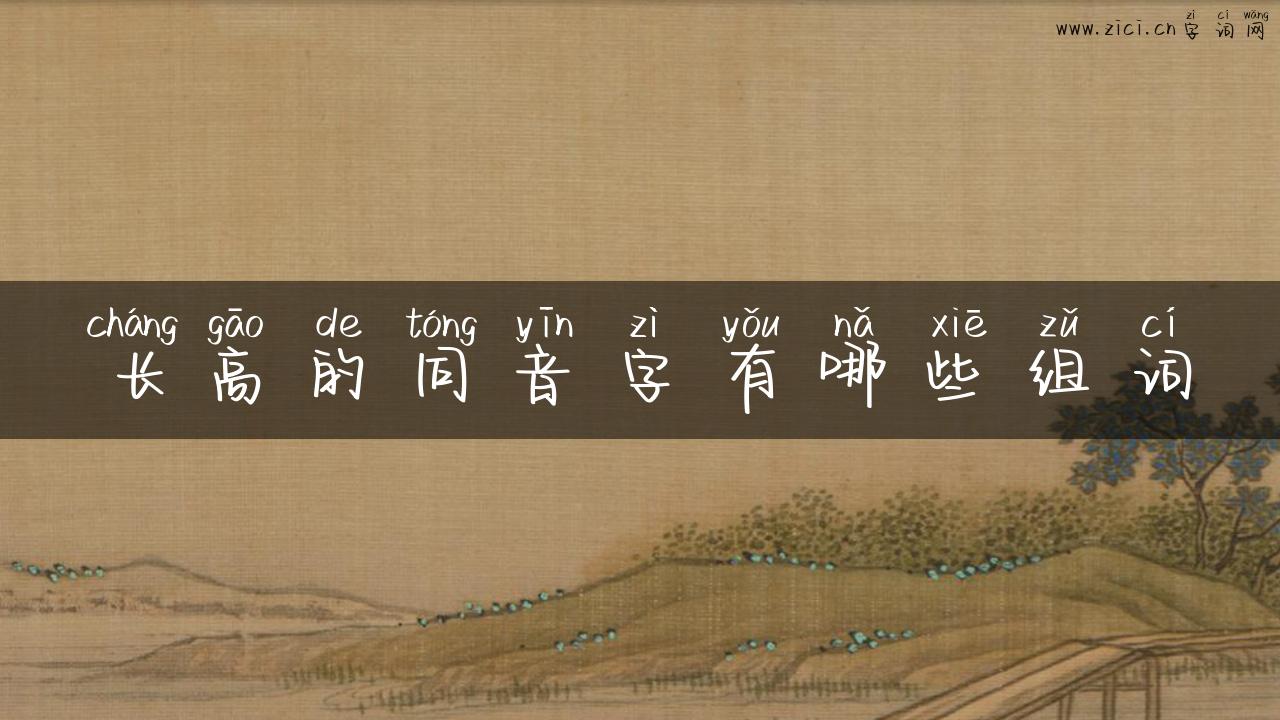 zì cí wǎng
www.zici.cn字词网
cháng gāo de tóng yīn zì yǒu nǎ xiē zǔ cí
长高的同音字有哪些组词